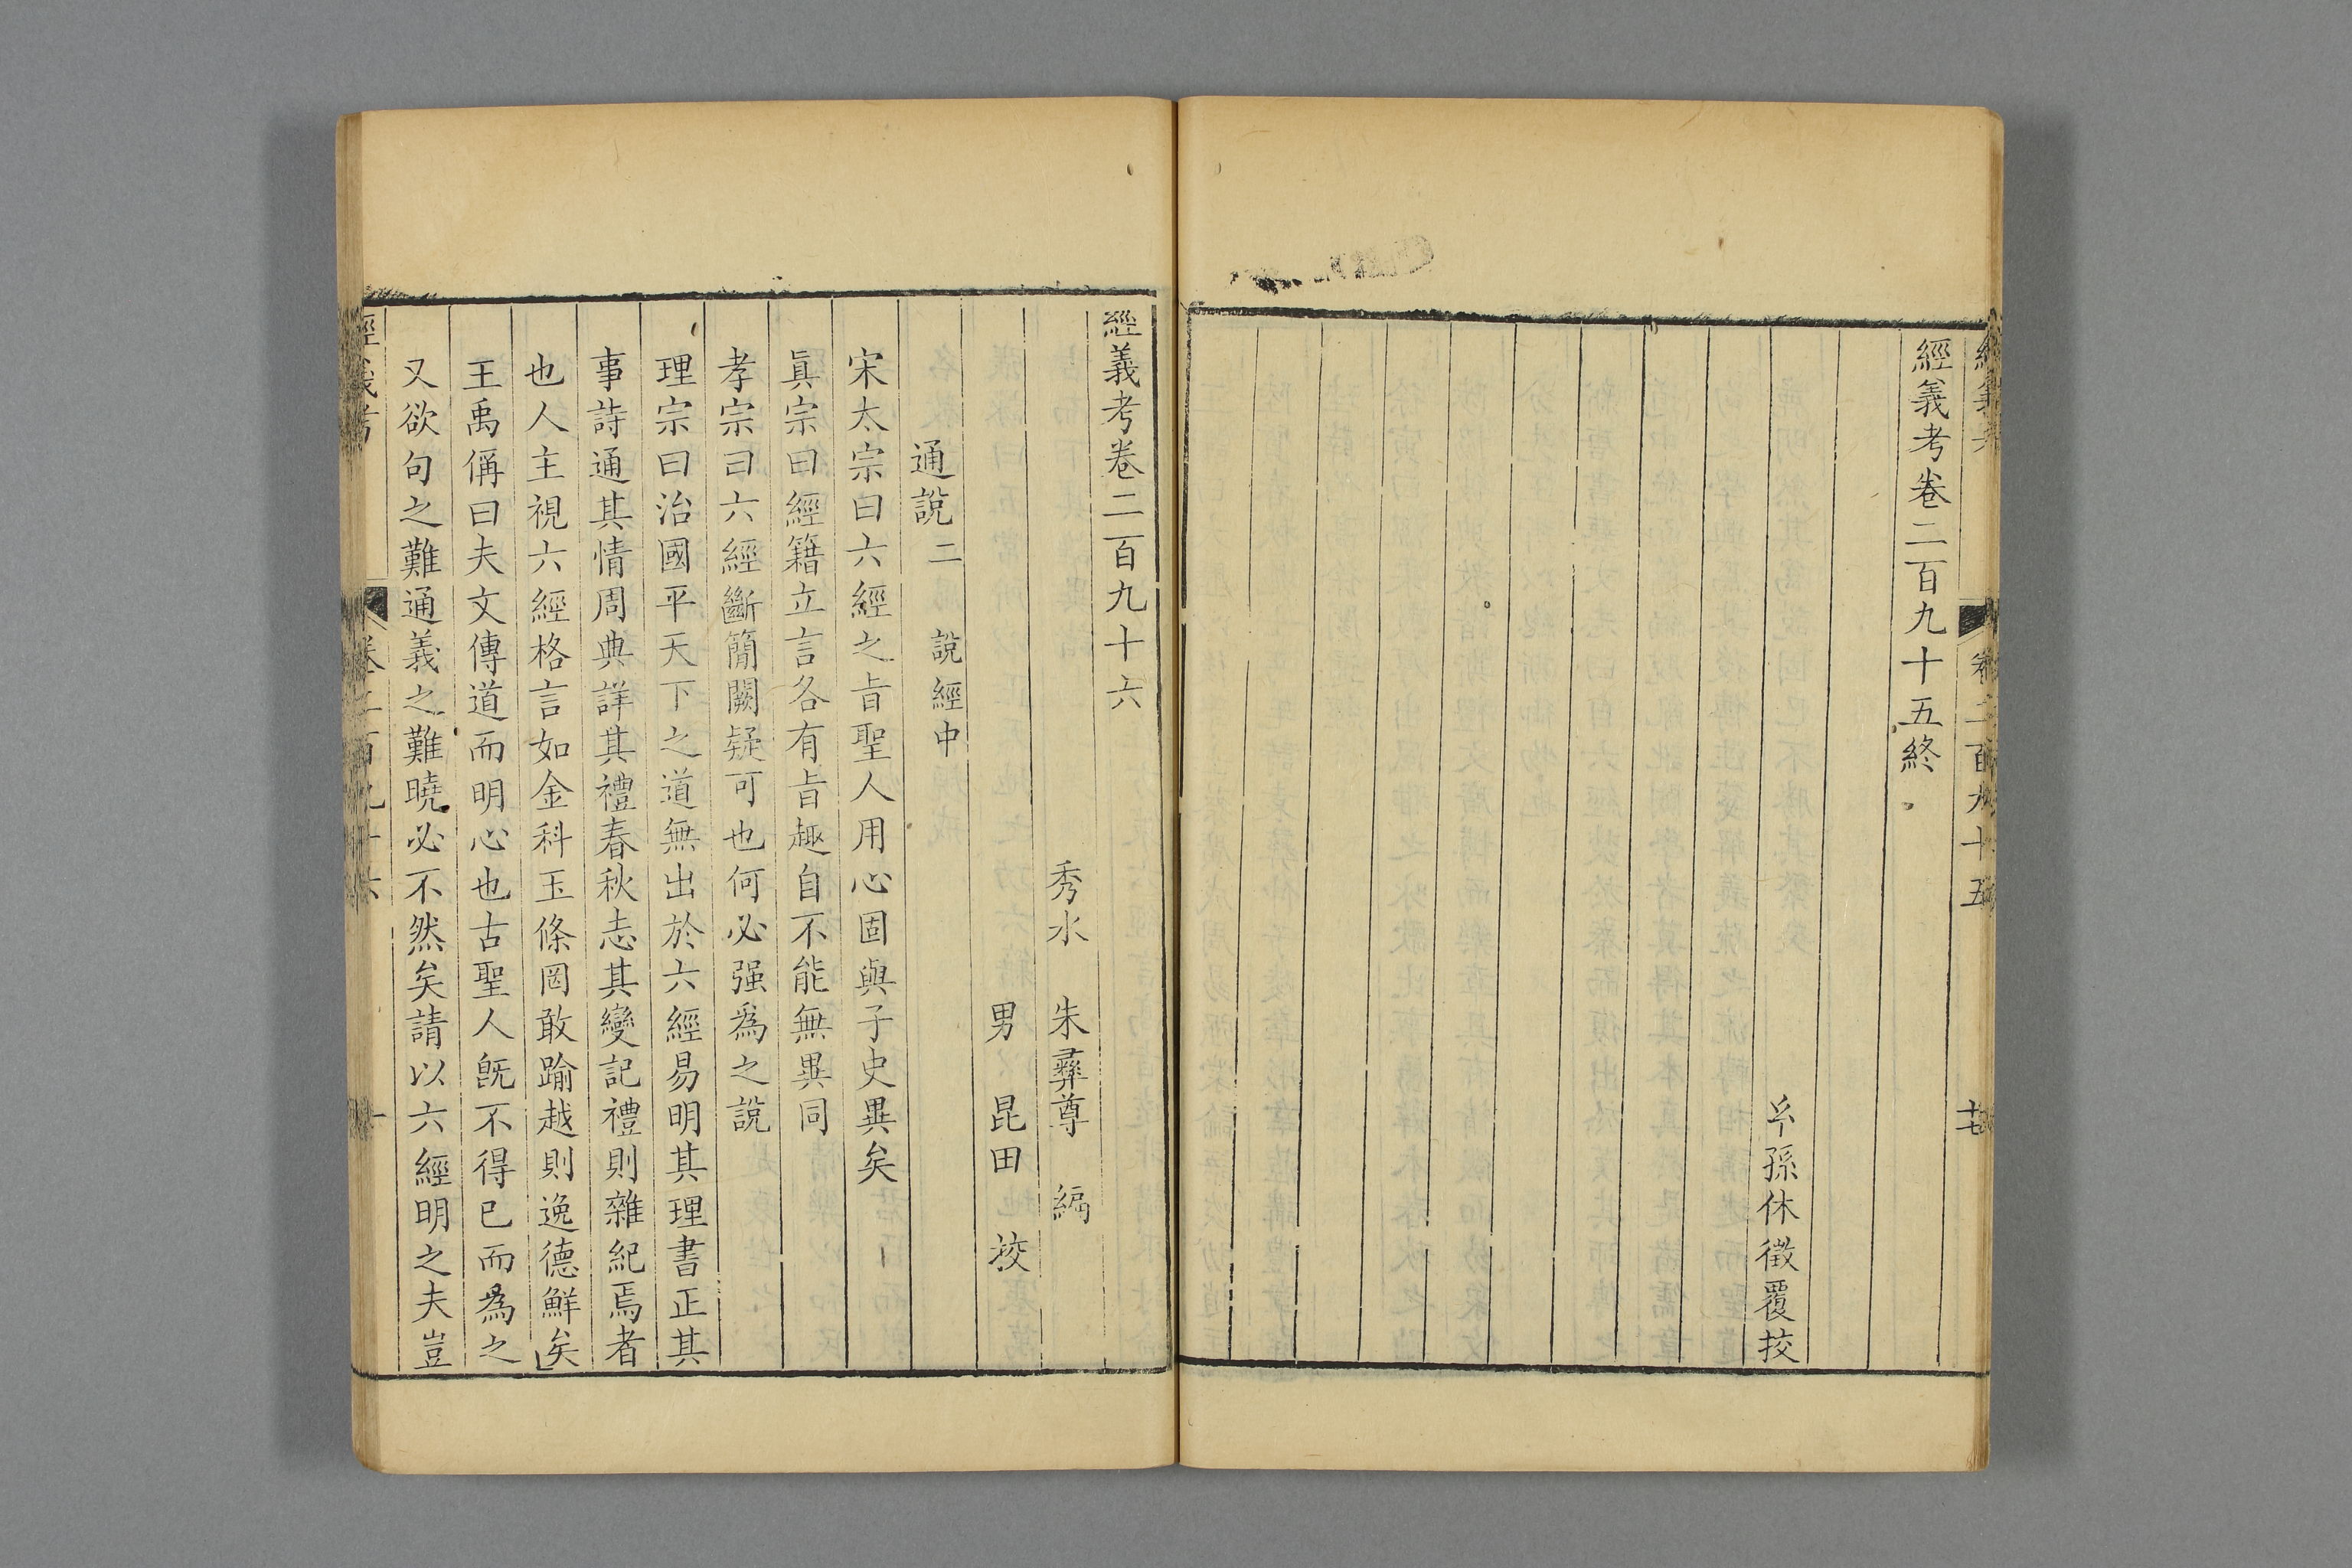 經義考卷二百九十五終
孫休徵覆挍
卷二百九十五
十七
經義考卷二百九十六
秀水 朱彝尊 編
男 昆田 挍
通說二 說經中
宋太宗曰六經之旨聖人用心固與子史異矣
眞宗曰經籍立言各有旨趣自不能無異同
孝宗曰六經斷簡闕疑可也何必强爲之說
理宗曰治國平天下之道無出於六經易明其理書正其
事詩通其情周典詳其禮春秋志其變記禮則雜紀焉者
也人主視六經格言如金科玉條罔敢踰越則逸德鮮矣
王禹偁曰夫文傳道而明心也古聖人旣不得已而爲之
又欲句之難通義之難曉必不然矣請以六經明之夫豈
經義考
卷二百九十六
一